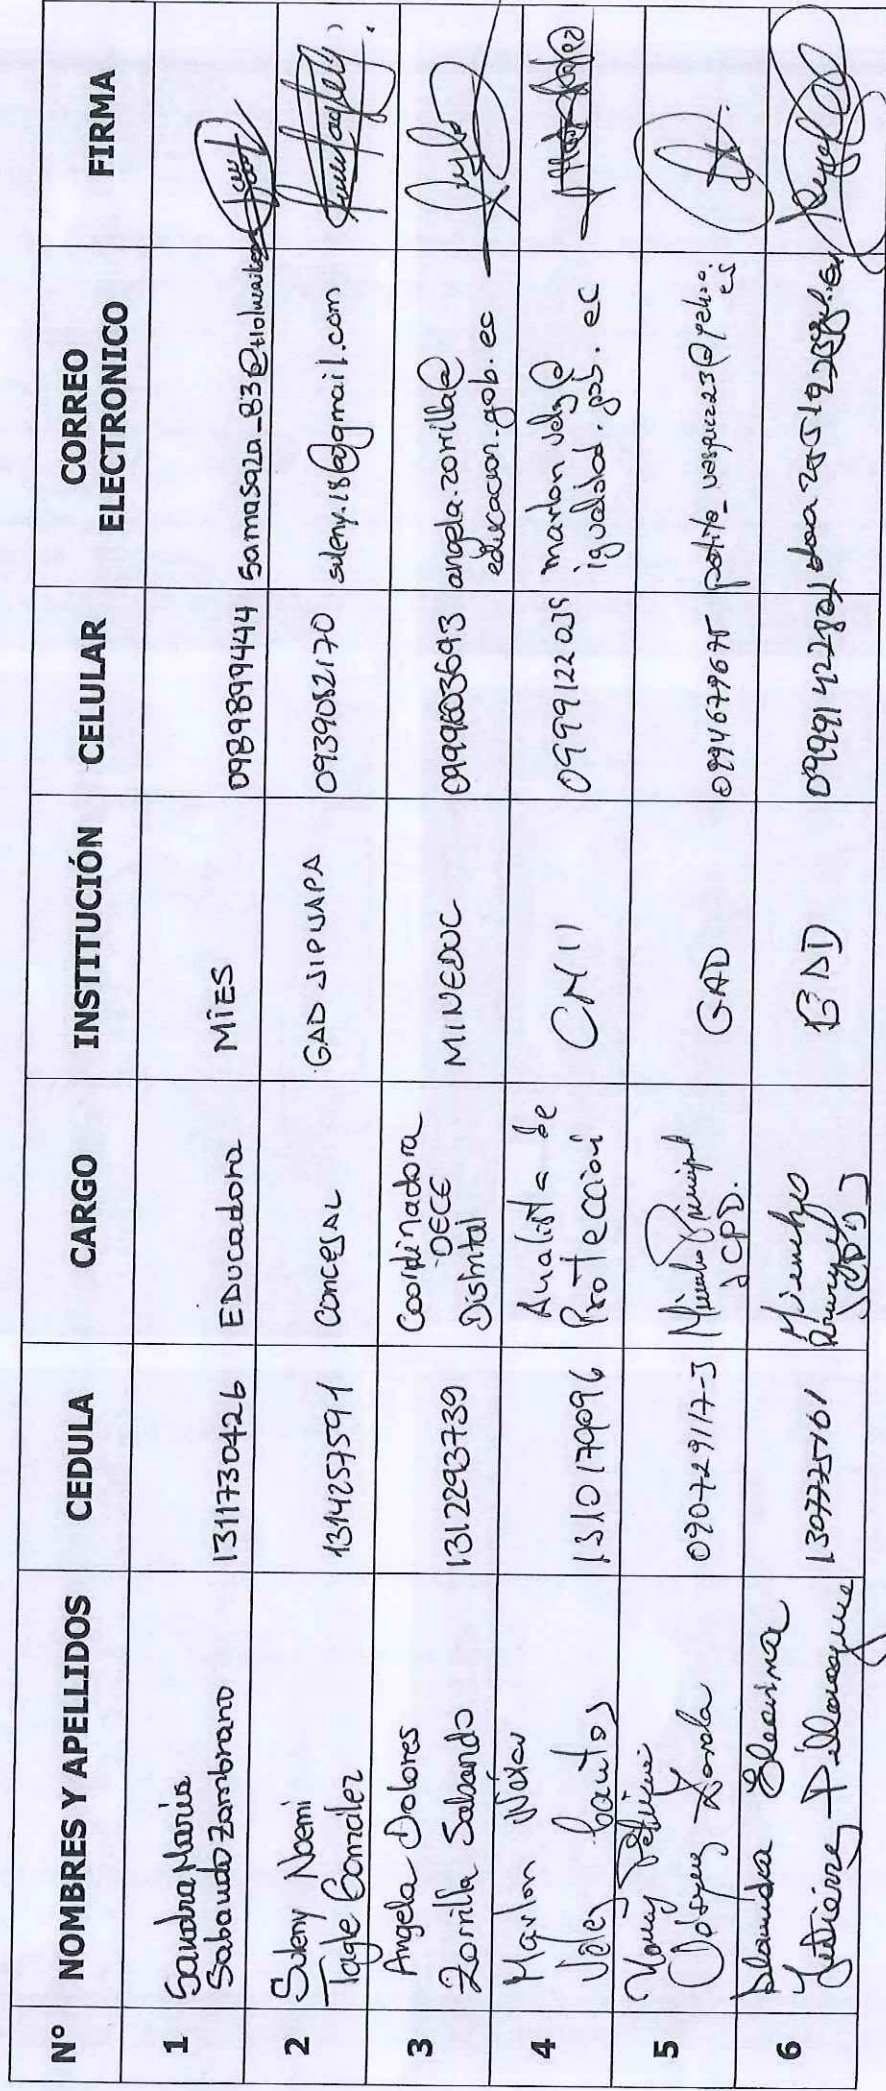 Nº NOMBRES Y APELLIDOS CEDULA CARGO INSTITUCIÓN CELULAR CORREO ELECTRONICO FIRMA
1 Sandra Maria Sabando Zambrano 1311730426 EDucadora MiES 0989899444 samasaza_83@
2 Suleny Noemi Tagle González 1314257591 Concejal GAD JIPIJAPA 0939082170 suleny.18@gmail.com
3 Angela Dolores Zorrilla Sabando 1312293739 Coordinadora DECE Distrital MINEDUC 0999603693 angela.zorrilla@educacion.gob.ec
4 Marlon Velez Santos 1310179096 Analista de Protección CNII 0999122039 marlon.velez@igualdad.gob.ec
5 Vásquez Zavala 090729117-3 Miembro Principal JCPD. GAD 0994679675 patito_vasquez23@yahoo.es
6 Gutiérrez Villacreses 1307775161 Miembro JCPD